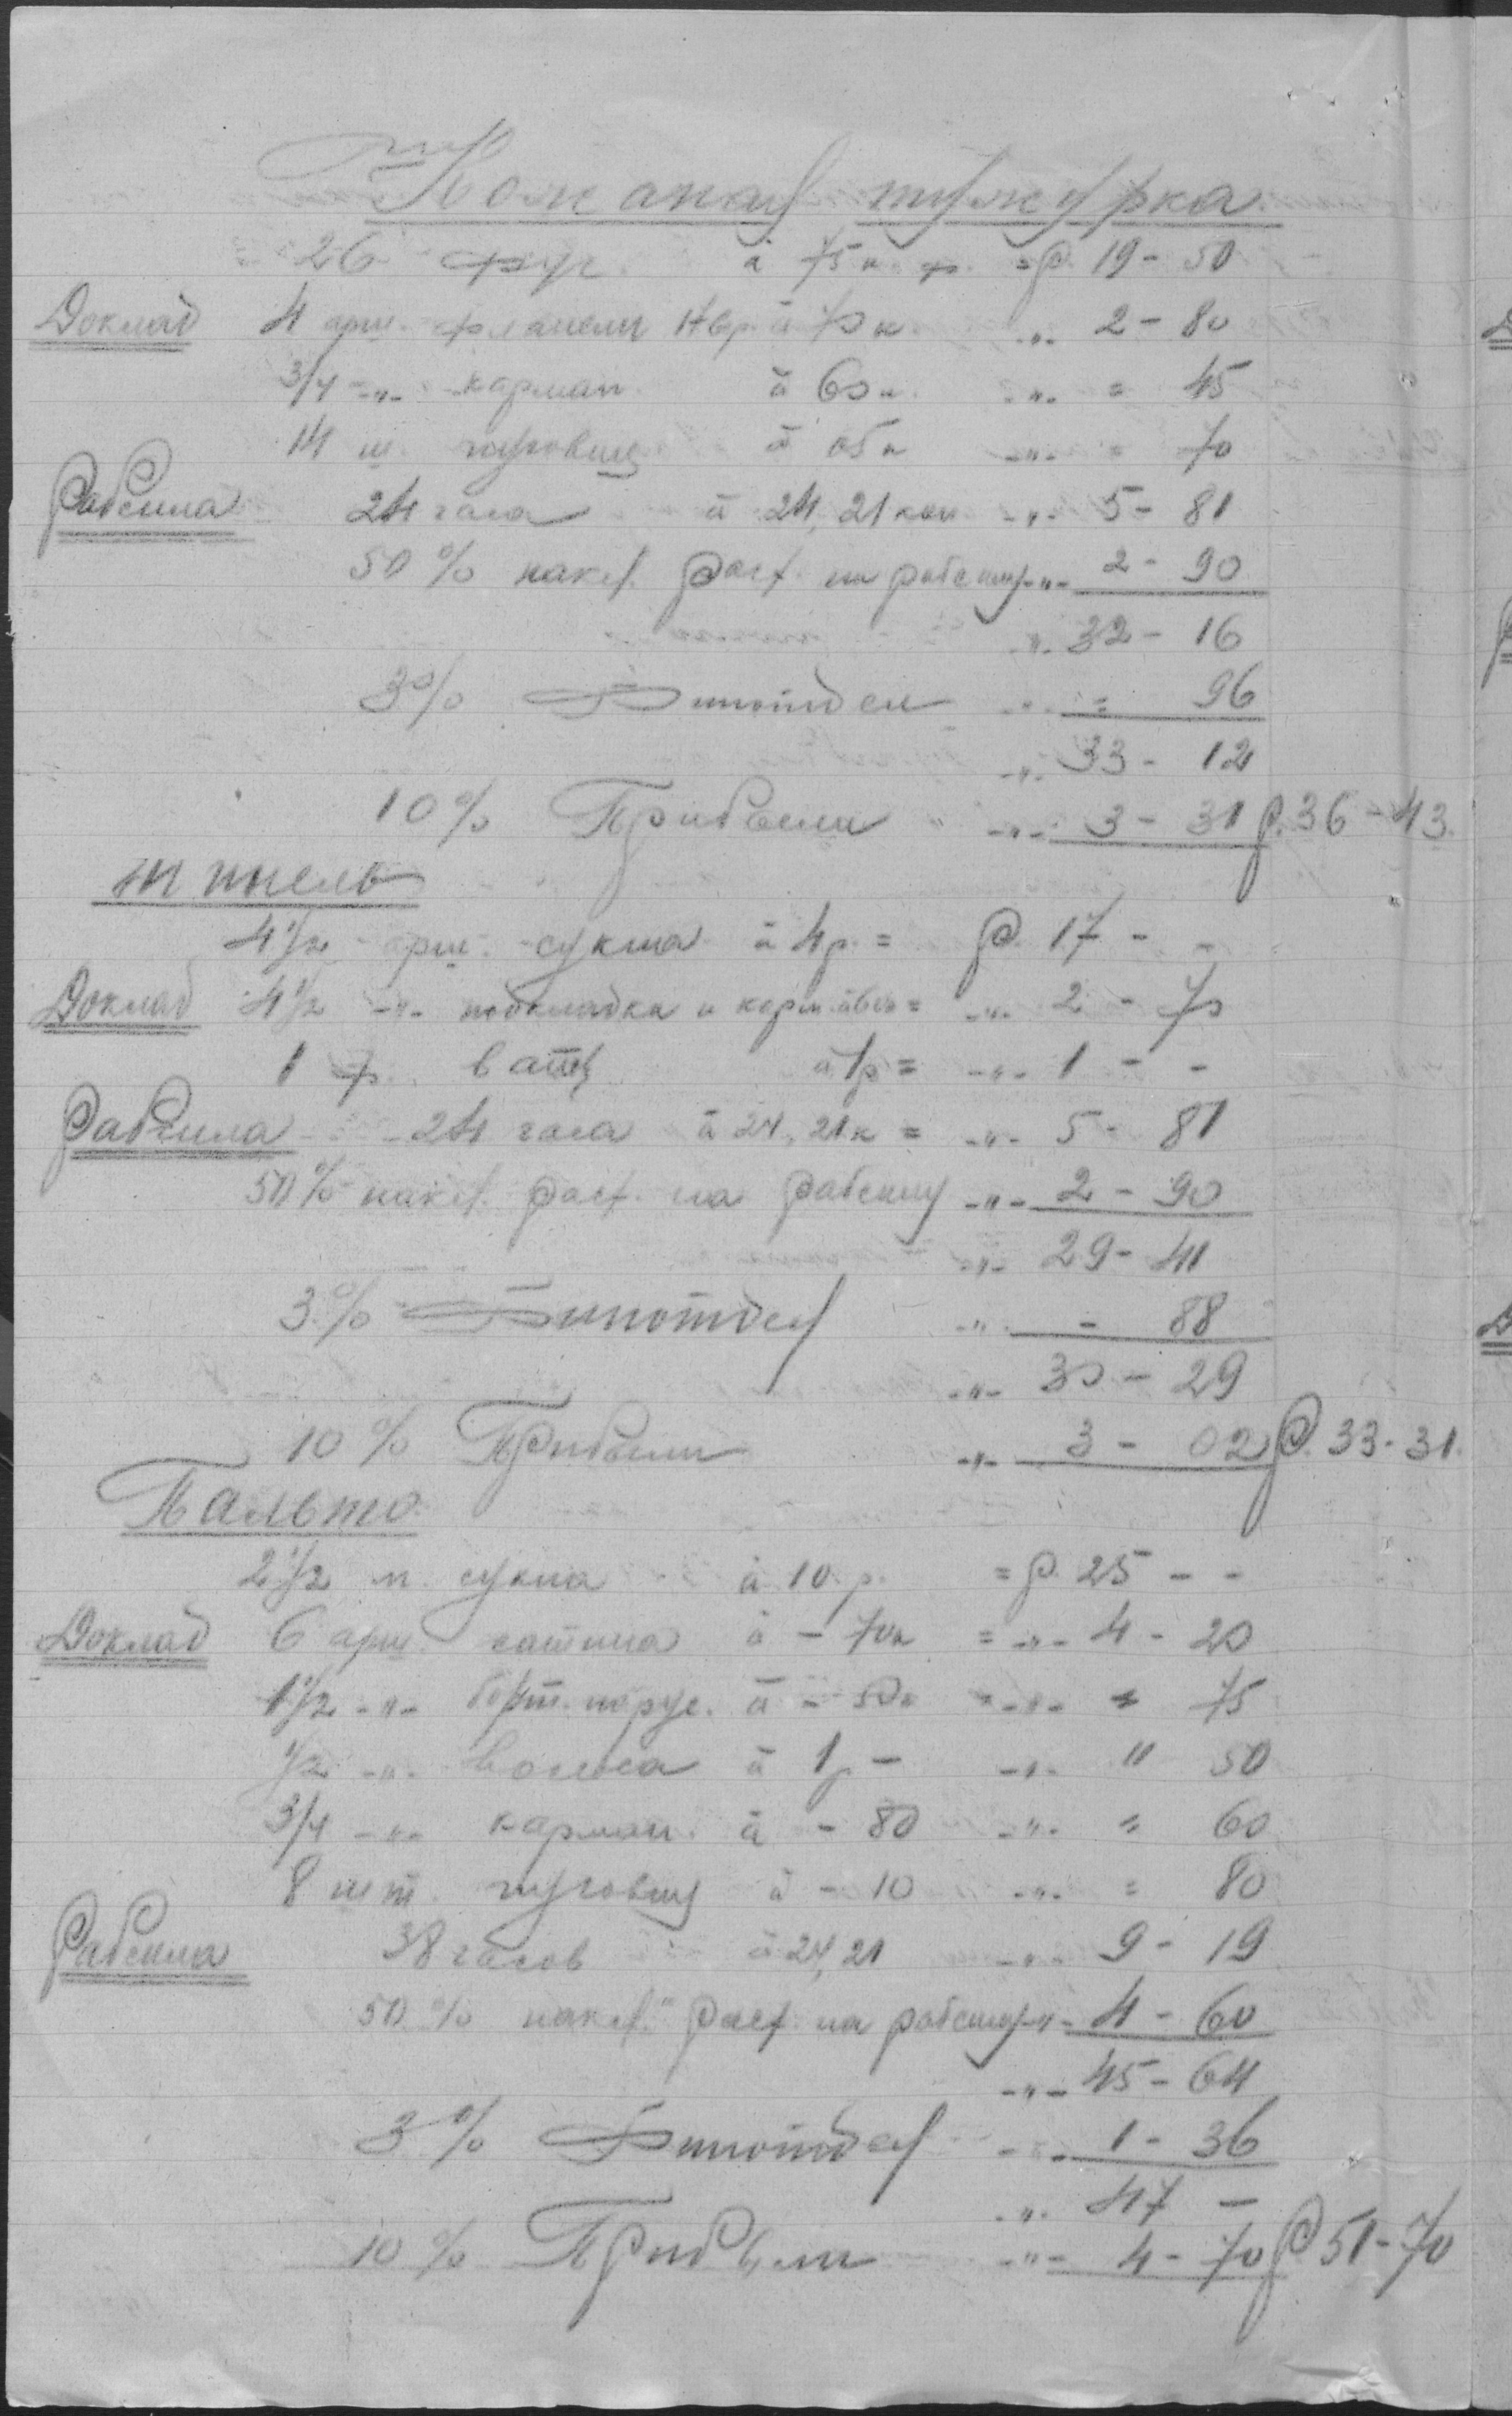 Кожаная тужурка
26 фут. à 75 к. ф. = р. 19 - 50
Доклад 4 арш. фланели à 70 к. -"- 2 - 80
3/4 -"- карман. à 60 к. -"- = 45
14 ш. пуговиц à 05 к -"- = 70
Рабсила 24 часа à 24,21 коп -"- 5 - 81
50 % накл. расх. на рабсилу -"- 2 - 90
-"- 32 - 16
3 % Финотдел -"- = 96
-"- 33 - 12
10 % Прибыли -"- 3 - 31 р. 36 - 43
Шинель
4 1/2 арш. сукна à 4 р. = р. 17 - -
Доклад 4 1/2 -"- подкладки и карм. = -"- 2 - 70
1 ф. ваты à 1 р = -"- 1 - -
Рабсила 24 часа à 24,21 к = -"- 5 - 81
50 % накл. расх. на рабсилу -"- 2 - 90
-"- 29 - 41
3 % Финотдел -"- - 88
-"- 30 - 29
10 % Прибыли -"- 3 - 02 р. 33 - 31
Пальто
2 1/2 м. сукна à 10 р. = р. 25 - -
Доклад 6 арш. сатина à - 70 к = -"- 4 - 20
1 1/2 -"- борт. парус. à - 50 к = -"- = 75
1/2 -"- волоса à 1 р - -"- " 50
3/4 -"- карман. à - 80 -"- = 60
8 шт. пуговиц à - 10 -"- = 80
Рабсила 38 часов à 24,21 -"- 9 - 19
50 % накл. расх. на рабсилу -"- 4 - 60
-"- 45 - 64
3 % Финотдел -"- 1 - 36
-"- 47 -
10 % Прибыли -"- 4 - 70 р 51 - 70